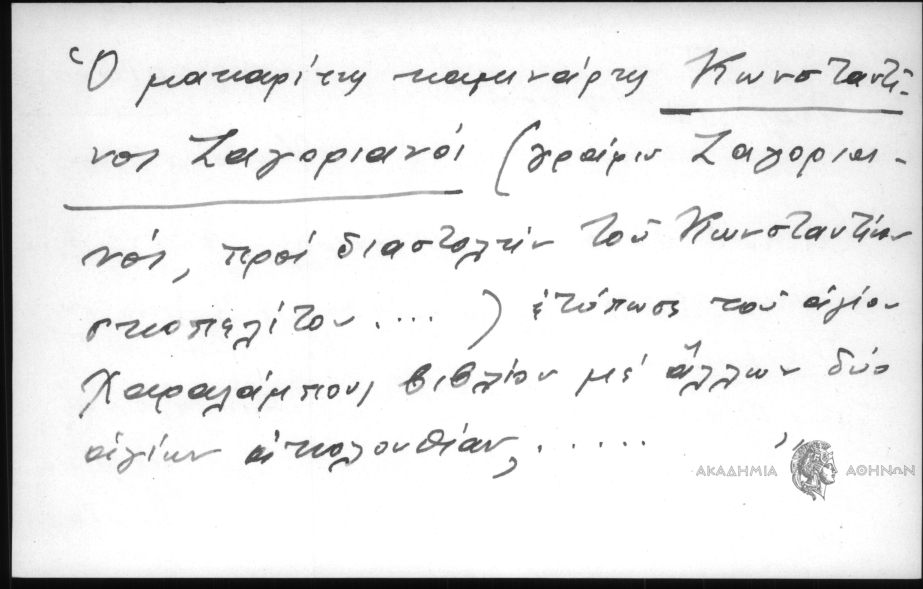 Ὁ μακαρίτης καμινάρης Κωνσταντῖ-
νος Ζαγοριανός (γράφω Ζαγορια-
νός, πρός διαστολήν τοῦ Κωνσταντίνου
σκοπελίτου ....) ἐτύπωσε τοῦ ἁγίου
Χαραλάμπους βιβλίον μέ ἄλλων δύο
ἁγίων ἀκολουθίαν, ...... "
ΑΚΑΔΗΜΙΑ ΑΘΗΝΩΝ